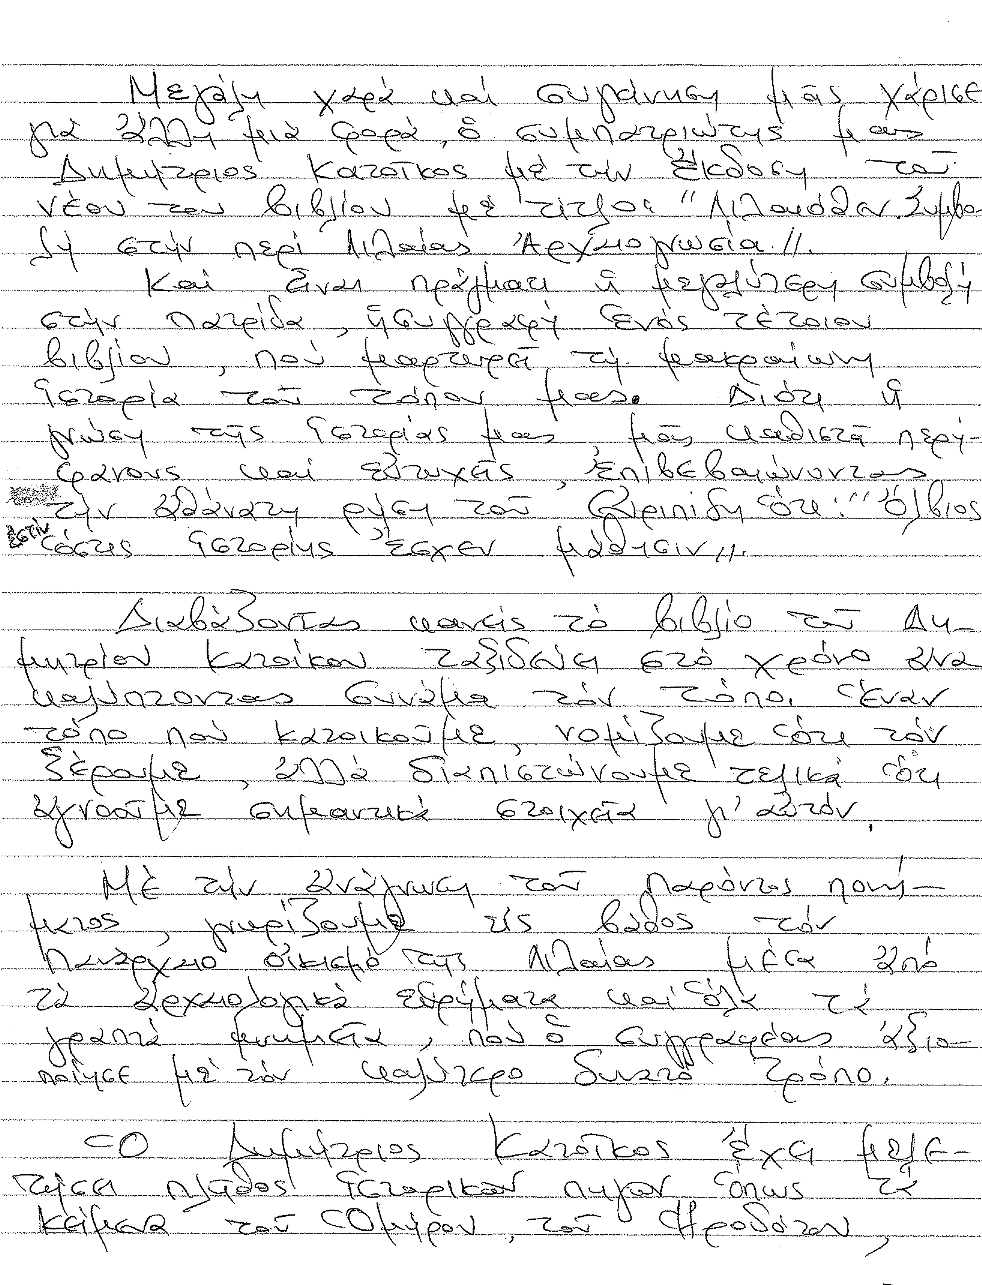 Μεγάλη χαρά καί συγκίνηση μᾶς χάρισε
γιά ἄλλη μιά φορά, ὁ συμπατριώτης μας
Δημήτριος Κατοῖκος μέ τήν ἔκδοση τοῦ
νέου του βιβλίου μέ τίτλο: "Λιλαιόθεν. Συμβο-
λή στήν περί Λιλαίας Ἀρχαιογνωσία".
Καί εἶναι πράγματι ἡ μεγαλύτερη συμβολή
στήν πατρίδα, ἡ συγγραφή ἑνός τέτοιου
βιβλίου, πού μαρτυρεῖ τή μακραίωνη
ἱστορία τοῦ τόπου μας. Διότι ἡ
γνώση τῆς ἱστορίας μας, μᾶς καθιστᾶ περή-
φανους καί εὐτυχεῖς, ἐπιβεβαιώνοντας
τήν ἀθάνατη ρήση τοῦ Εὐριπίδη ὅτι: "Ὄλβιος
ἐστίν ὅστις ἱστορίης ἔσχεν μάθησιν".
Διαβάζοντας κανείς τό βιβλίο τοῦ Δη-
μητρίου Κατοίκου ταξιδεύει στό χρόνο ἀνα
καλύπτοντας συνάμα τόν τόπο. Ἕναν
τόπο πού κατοικοῦμε, νομίζουμε ὅτι τόν
ξέρουμε, ἀλλά διαπιστώνουμε τελικά ὅτι
ἀγνοοῦμε σημαντικά στοιχεῖα γι' αὐτόν.
Μέ τήν ἀνάγνωση τοῦ παρόντος πονή-
ματος, γνωρίζουμε εἰς βάθος τόν
πανάρχαιο οἰκισμό τῆς Λιλαίας μέσα ἀπό
τά ἀρχαιολογικά εὑρήματα καί ὅλα τά
γραπτά μνημεῖα, πού ὁ συγγραφέας ἀξιο-
ποίησε μέ τόν καλύτερο δυνατό τρόπο.
Ὁ Δημήτριος Κατοῖκος ἔχει μελε-
τήσει πλῆθος ἱστορικῶν πηγῶν ὅπως τά
κείμενα τοῦ Ὁμήρου, τοῦ Ἡροδότου,